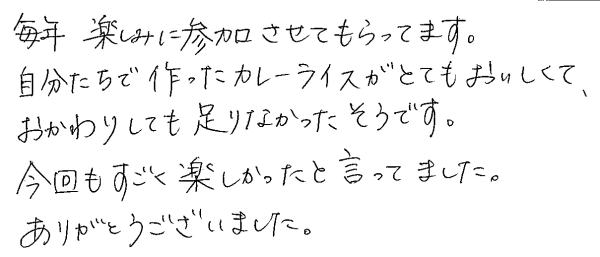 毎年 楽しみに参加させてもらってます。
自分たちで作ったカレーライスがとてもおいしくて、
おかわりしても足りなかったそうです。
今回もすごく楽しかったと言ってました。
ありがとうございました。